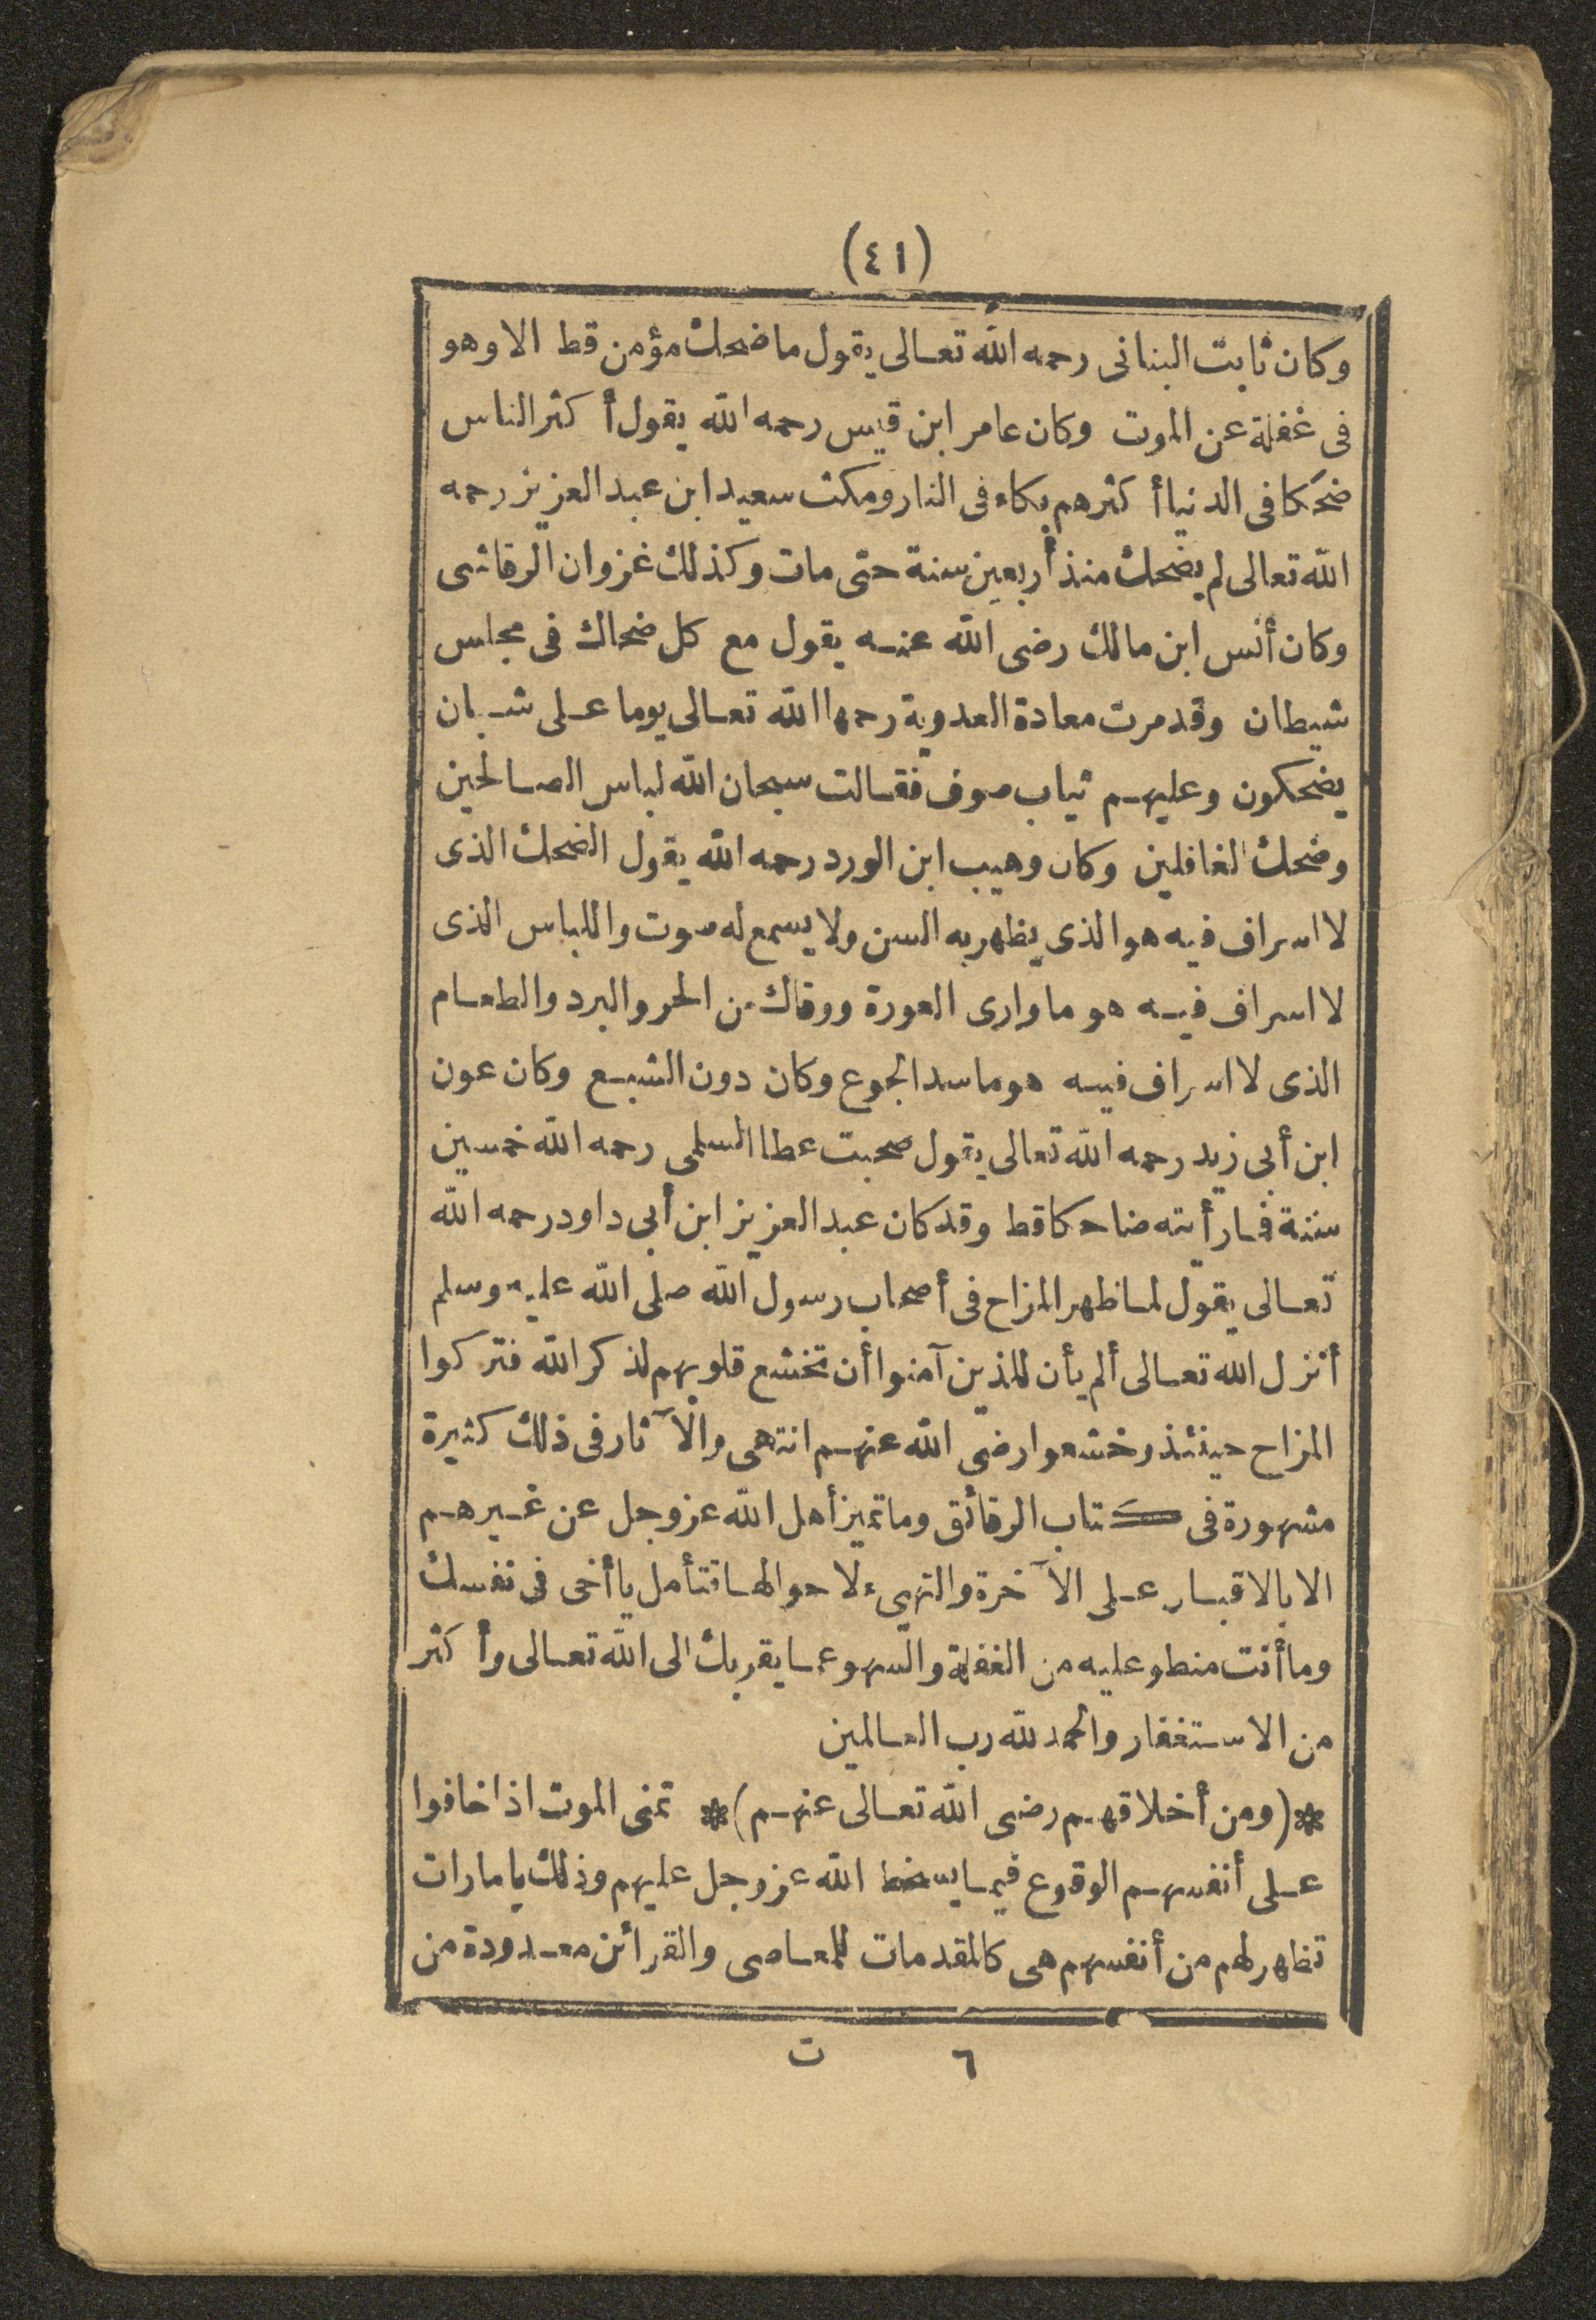 (٤١)
وكان ثابت البنانى رحمه الله تعالى يقول ماضحك مؤمن قط الا وهو
فى غفلة عن الموت وكان عامر ابن قيس رحمه الله يقول أكثر الناس
ضحكا فى الدنيا أكثرهم بكاء فى النار ومكث سعيد ابن عبد العزيز رحمه
الله تعالى لم يضحك منذ أربعين سنة حتى مات وكذلك غزوان الرقاشى
وكان أنس ابن مالك رضى الله عنه يقول مع كل ضحاك فى مجلس
شيطان وقد مرت معادة العدوية رحمها الله تعالى يوما على شبان
يضحكون وعليهم ثياب صوف فقالت سبحان الله لباس الصالحين
وضحك الغافلين وكان وهيب ابن الورد رحمه الله يقول الضحك الذى
لا اسراف فيه هو الذى يظهر به السن ولا يسمع له صوت واللباس الذى
لا اسراف فيه هو ما وارى العورة ووقاك من الحر والبرد والطعام
الذى لا اسراف فيه هو ما سد الجوع وكان دون الشبع وكان عون
ابن أبى زيد رحمه الله تعالى يقول صحبت عطا السلمى رحمه الله خمسين
سنة فما رأيته ضاحكا قط وقد كان عبد العزيز ابن أبى داود رحمه الله
تعالى يقول لما ظهر المزاح فى أصحاب رسول الله صلى الله عليه وسلم
أنزل الله تعالى ألم يأن للذين آمنوا أن تخشع قلوبهم لذكر الله فتركوا
المزاح حينئذ وخشعوا رضى الله عنهم انتهى والآثار فى ذلك كثيرة
مشهورة فى كتاب الرقائق وما تميز أهل الله عز وجل عن غيرهم
الا بالاقبار على الآخرة والتهيء لاحوالها فتأمل يا أخى فى نفسك
وما أنت منطو عليه من الغفلة والسهو عما يقربك الى الله تعالى وأكثر
من الاستغفار والحمد لله رب العالمين
* (ومن أخلاقهم رضى الله تعالى عنهم) * تمنى الموت اذا خافوا
على أنفسهم الوقوع فيما يسخط الله عز وجل عليهم وذلك بامارات
تظهر لهم من أنفسهم هى كالمقدمات للمعاصى والقرائن معدودة من
٦ ت